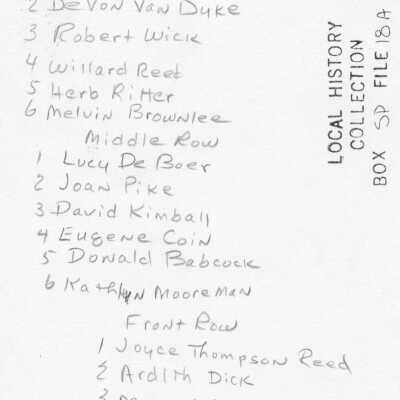 2 DeVon Van Dyke
3 Robert Wick
4 Willard Reed
5 Herb Ritter
6 Melvin Brownlee
Middle Row
1 Lucy De Boer
2 Joan Pike
3 David Kimball
4 Eugene Coin
5 Donald Babcock
6 Kathlyn Mooreman
Front Row
1 Joyce Thompson Reed
2 Ardith Dick
3
LOCAL HISTORY
COLLECTION
BOX SP FILE 18A